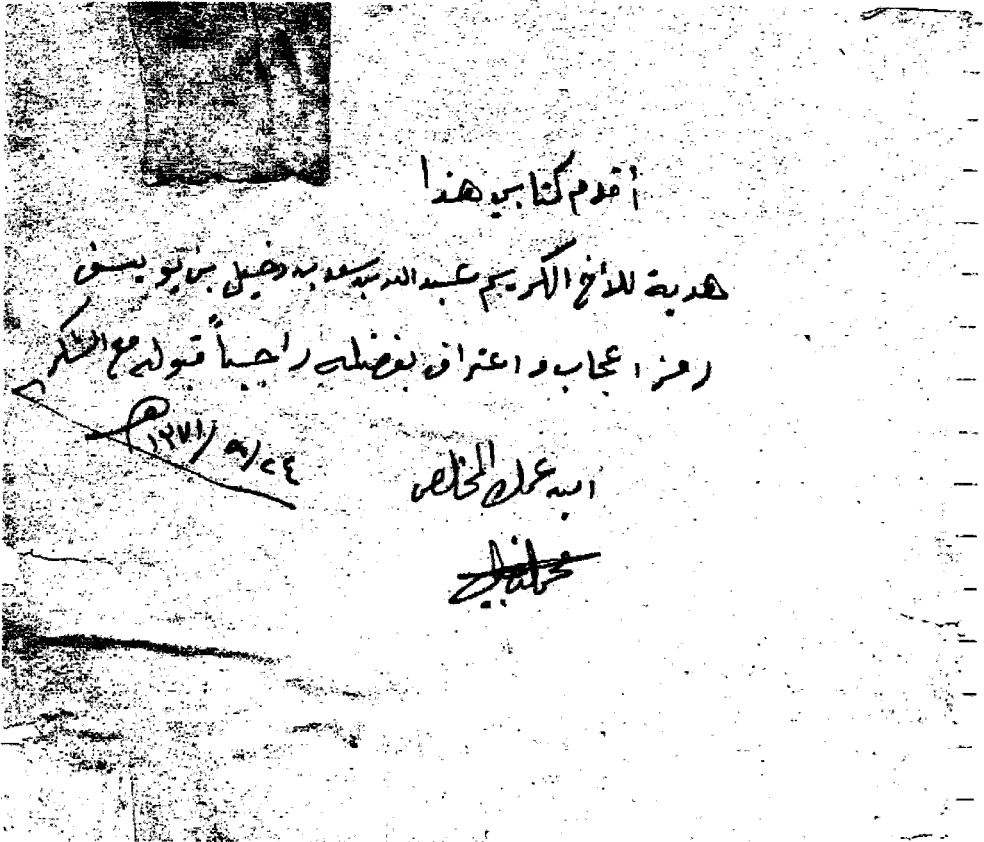 أقدم كتابي هذا
هدية للأخ الكريم عبدالله بن سعد بن دخيل بن يوسف
رمز اعجاب و اعتراف بفضله راجياً قبوله مع الشكر
ابن عمك المخلص
٢٤/٩/١٣٧١هـ